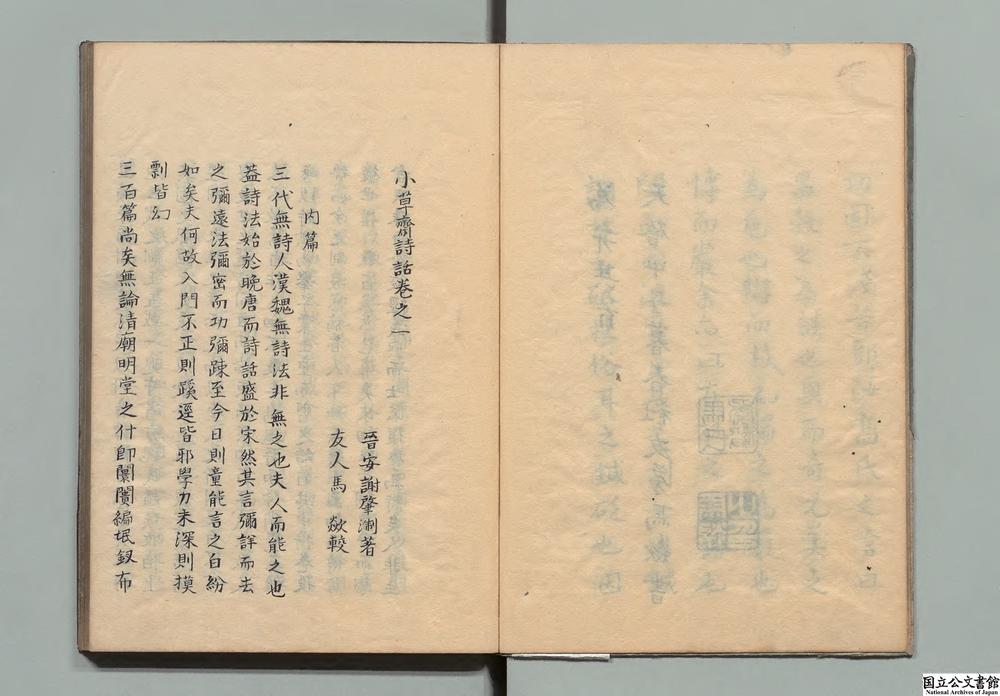 小草齋詩話卷之一
晉安謝肇淛著
友人馬歘較
內篇
三代無詩人漢魏無詩法非無之也夫人而能之也
蓋詩法始於晚唐而詩話盛於宋然其言彌詳而去
之彌遠法彌密而功彌踈至今日則童能言之白紛
如矣夫何故入門不正則蹊逕皆邪學力未深則摸
剽皆幻
三百篇尚矣無論清廟明堂之什即閭閻編氓釵布
国立公文書館
National Archives of Japan